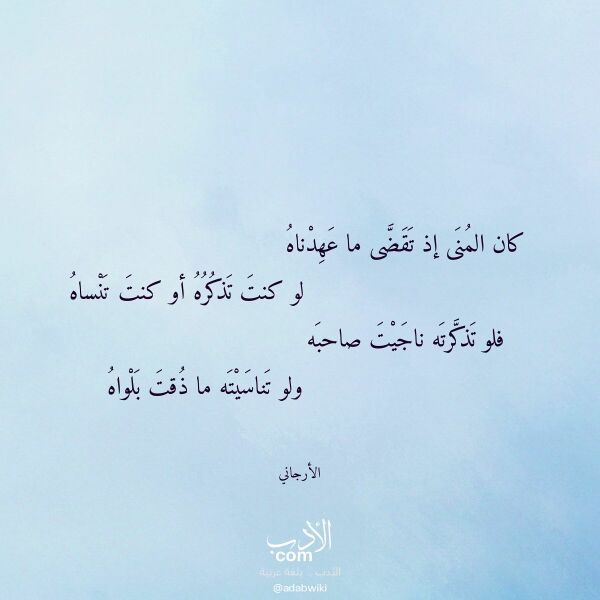 كان المُنَى إذ تَقَضَّى ما عَهِدْناهُ
لو كنتَ تَذكُرُهُ أو كنتَ تَنْساهُ
فلو تَذكَّرتَه ناجَيْتَ صاحبَه
ولو تَناسَيْتَه ما ذُقتَ بَلْواهُ
الأرجاني
الأدب
com
الأدب .. بلغة عربية
@adabwiki